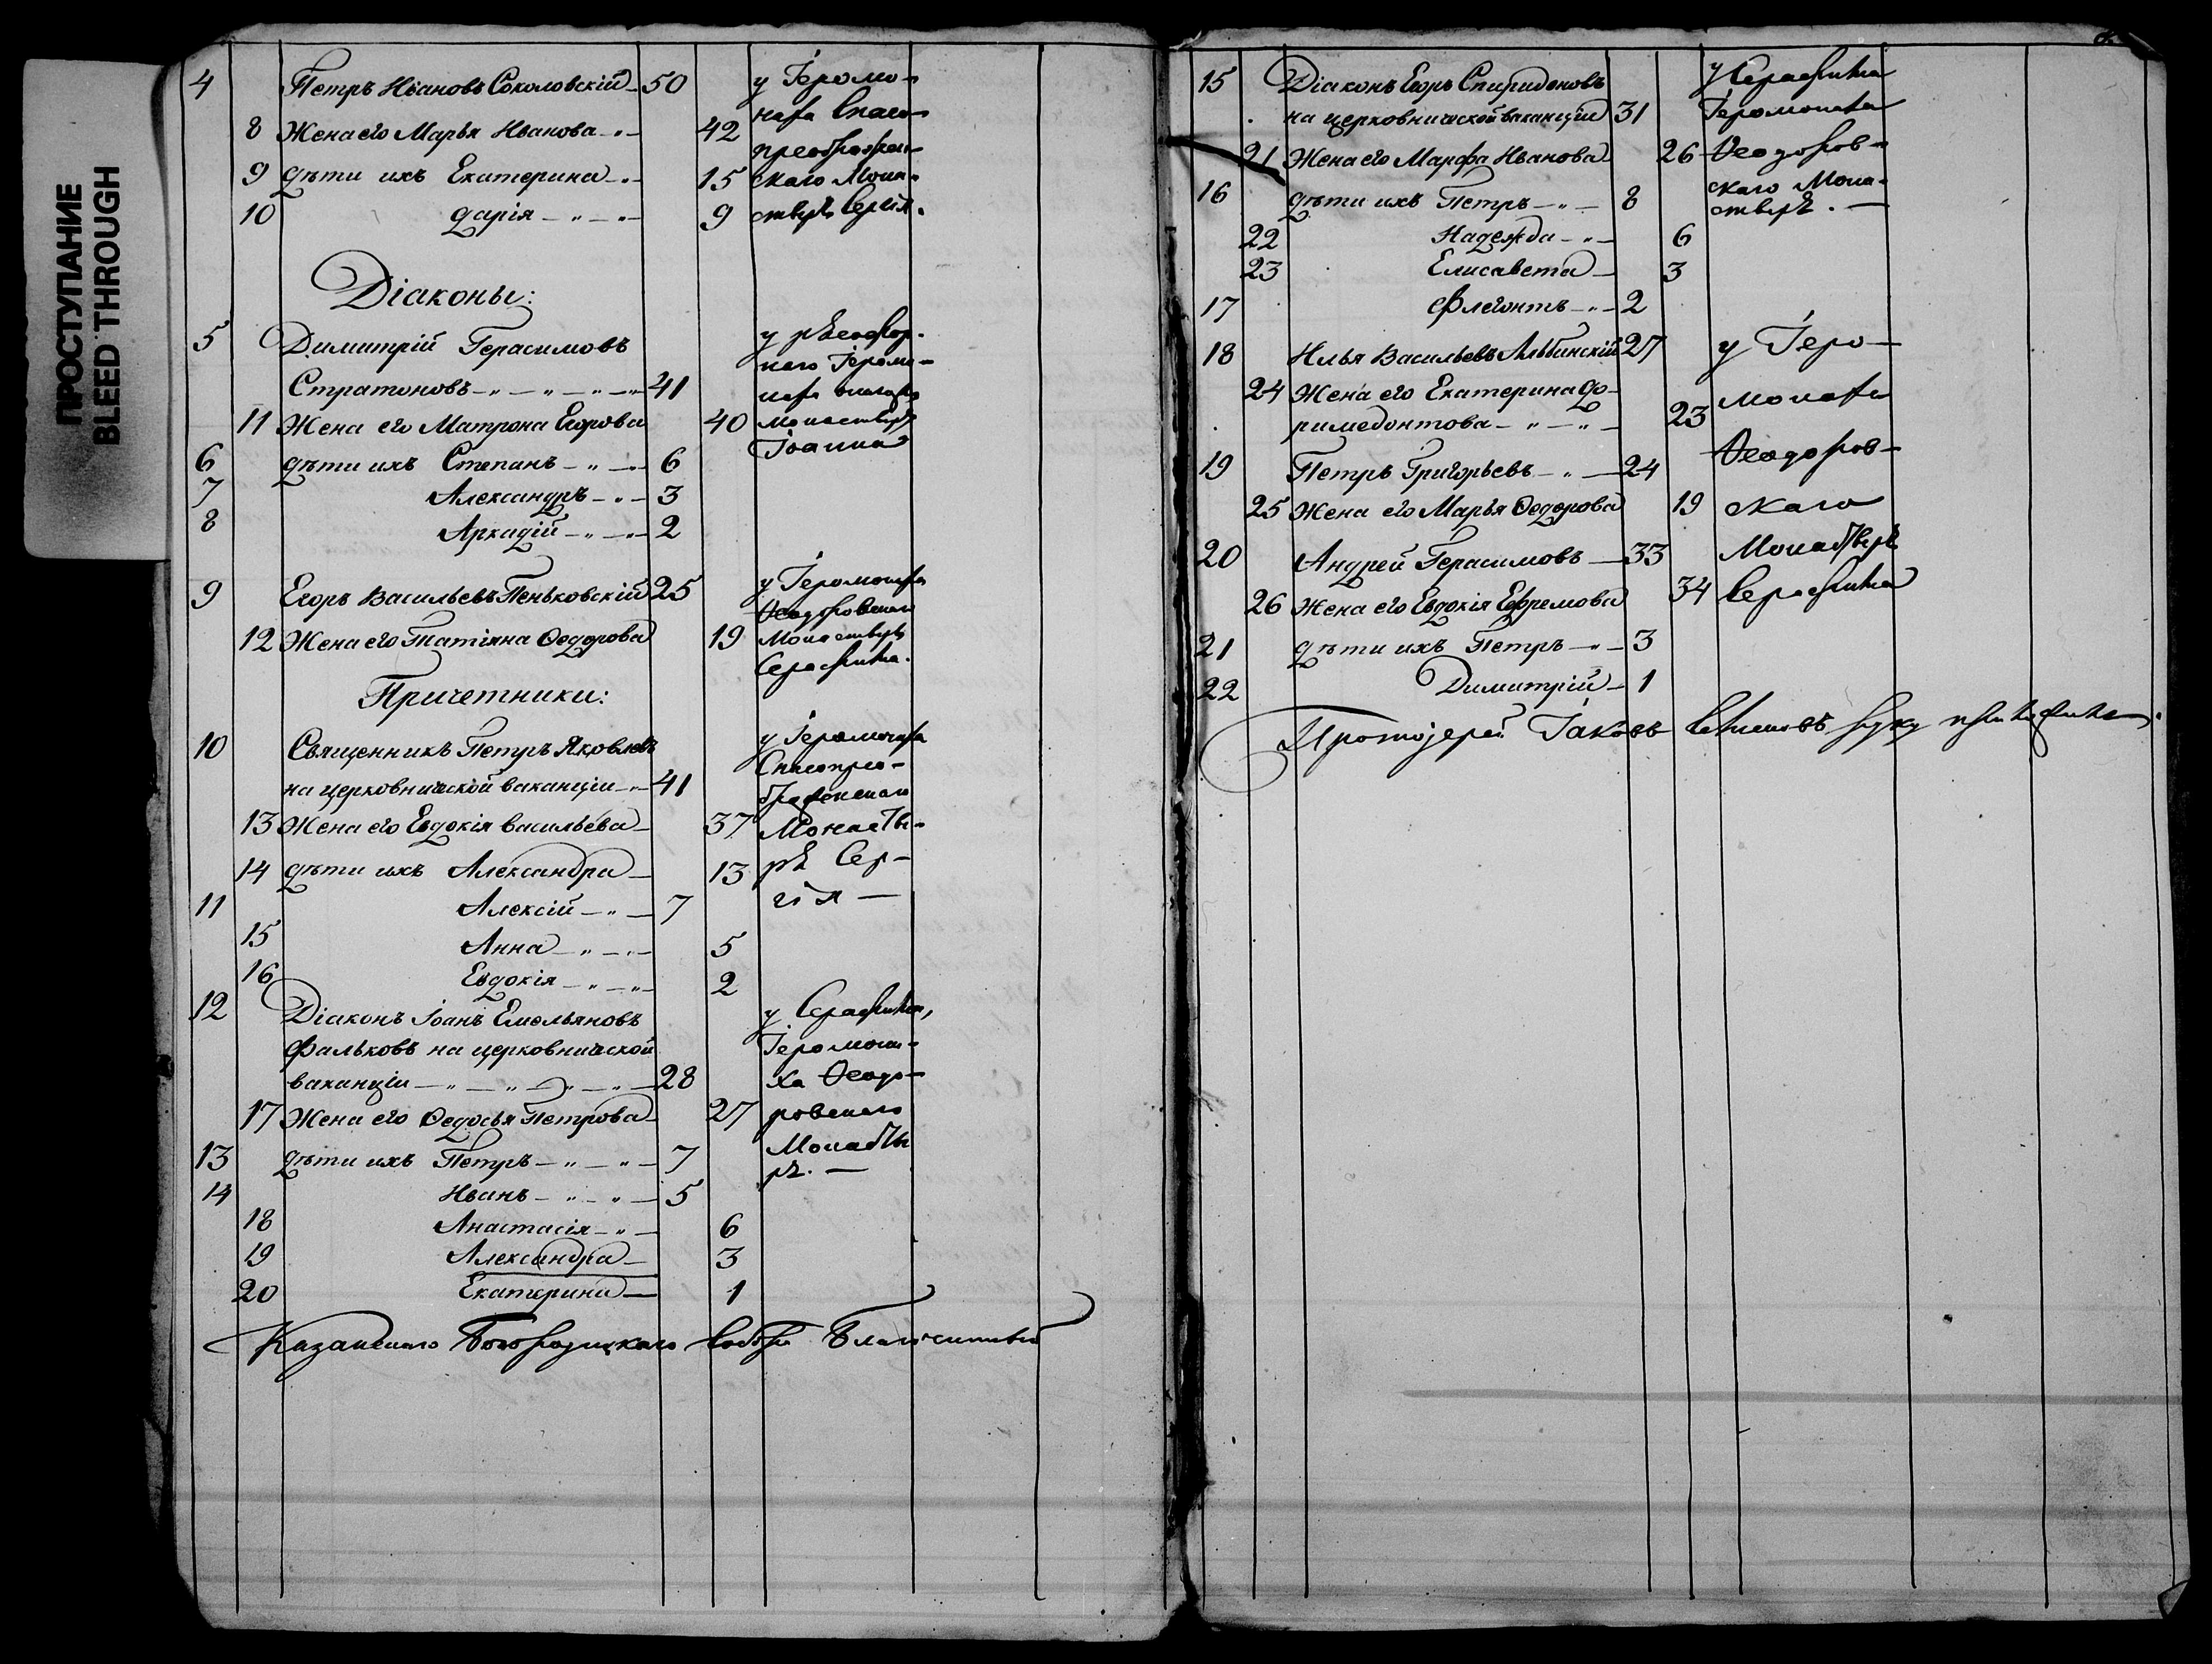 ПРОСТУПАНИЕ
BLEED THROUGH
4 Петръ Ивановъ Соколовскій 50 у Іеромо-
наха Спасо-
8 Жена его Марья Иванова 42
преображен-
9 дѣти ихъ Екатерина 15 скаго Мона-
10 Дарія 9 стыря Сергія.
Діаконы:
5 Димитрій Герасимовъ
Стратоновъ 41
наго Іеромо-
наха
11 Жена его Матрона Егорова 40 Монастыря
Іоанна
6 дѣти ихъ Степанъ 6
7 Александръ 3
8 Аркадій 2
9 Егоръ Васильевъ Пеньковскій 25 у Іеромонаха
Ѳеодоровскаго
12 Жена его Татіяна Ѳедорова 19 Монастыря
Серафима.
Причетники:
10 Священникъ Петръ Яковлевъ у Іеромонаха
Спасопрео-
на церковнической ваканціи 41 браженскаго
13 Жена его Евдокія Васильева 37 Монасты-
14 дѣти ихъ Александра 13 ря Сер-
11 Алексій 7 гія
15 Анна 5
16 Евдокія 2
12 Діаконъ Іоанъ Емельяновъ у Серафима,
Фальковъ на церковнической Іеромона-
ваканціи 28 ха Ѳеодо-
17 Жена его Ѳедосья Петрова 27 ровскаго
13 дѣти ихъ Петръ 7 Монасты
ря.
14 Иванъ 5
18 Анастасія 6
19 Александра 3
20 Екатерина 1
Казанскаго Богородицкаго Собора Благочинный
15 Діаконъ Егоръ Спиридоновъ у Серафима
на церковнической ваканціи 31 Іеромонаха
21 Жена его Марфа Иванова 26 Ѳеодоров-
скаго Мона-
16 дѣти ихъ Петръ 8 стыря.
22 Надежда 6
23 Елисавета 3
17 Флегонтъ 2
18 Илья Васильевъ Альбинскій 27 у Іеро-
24 Жена его Екатерина До-
монаха
римедонтова 23
Ѳеодоров-
19 Петръ Григорьевъ 24
25 Жена его Марья Ѳедорова 19 скаго
20 Андрей Герасимовъ 33 Монастыря
26 Жена его Евдокія Ефремова 34 Серафима
21 дѣти ихъ Петръ 3
22 Димитрій 1
Протоіерей Іаковъ руку приложилъ